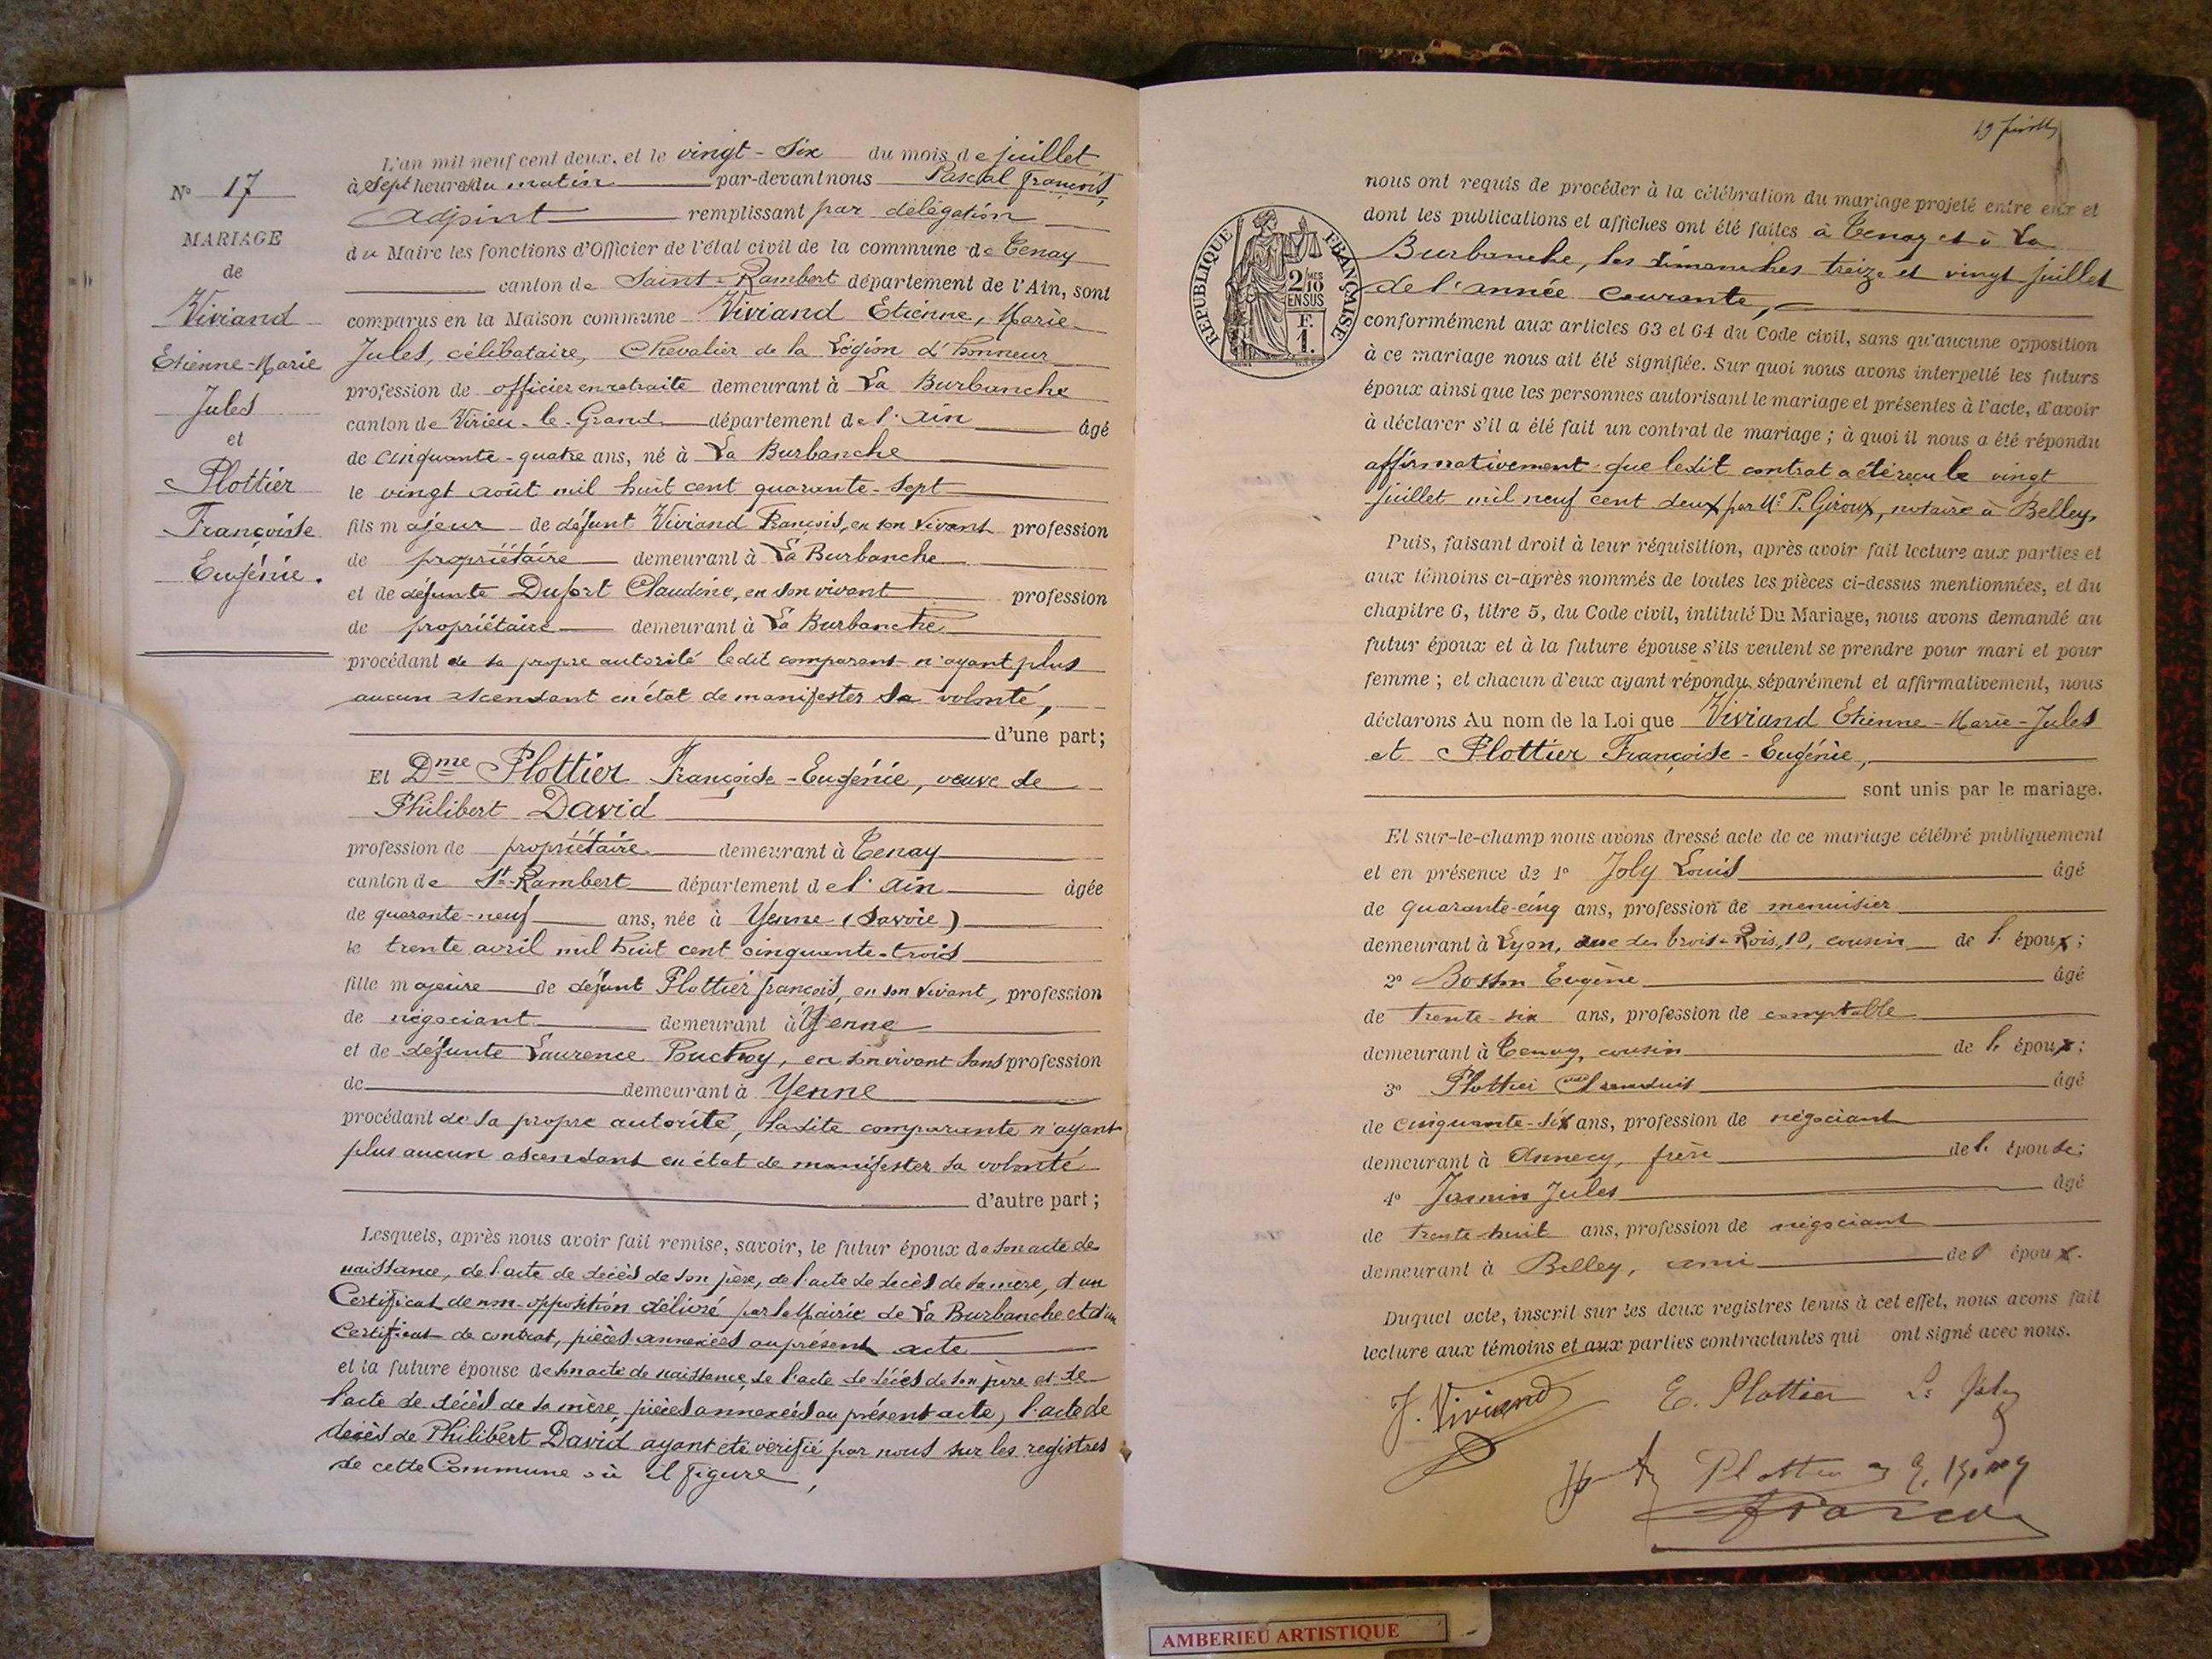 N° 17
MARIAGE
de
Viviand
Etienne-Marie
Jules
et
Plottier
Françoise
Eugénie.
L'an mil neuf cent deux, et le vingt-six du mois de juillet
à sept heures du matin par-devant nous Pascal françois,
adjoint remplissant par délégation
du Maire les fonctions d'Officier de l'état civil de la commune de Tenay
canton de Saint-Rambert département de l'Ain, sont
comparus en la Maison commune Viviand Etienne, Marie
Jules, célibataire, Chevalier de la Légion d'honneur
profession de officier en retraite demeurant à La Burbanche
canton de Virieu-le-Grand département de l'ain âgé
de cinquante-quatre ans, né à La Burbanche
le vingt août mil huit cent quarante-sept
fils majeur de défunt Viviand François, en son vivant profession
de propriétaire demeurant à La Burbanche
et de défunte Dufort Claudine, en son vivant profession
de propriétaire demeurant à La Burbanche
procédant de sa propre autorité ledit comparant n'ayant plus
aucun ascendant en état de manifester sa volonté,
d'une part;
Et Dme Plottier Françoise-Eugénie, veuve de
Philibert David
profession de propriétaire demeurant à Tenay
canton de St-Rambert département de l'ain âgée
de quarante-neuf ans, née à Yenne (Savoie)
le trente avril mil huit cent cinquante-trois
fille majeure de défunt Plottier françois, en son vivant, profession
de négociant demeurant à Yenne
et de défunte Laurence en son vivant sans profession
de demeurant à Yenne
procédant de sa propre autorité, ladite comparante n'ayant
plus aucun ascendant en état de manifester sa volonté
d'autre part;
Lesquels, après nous avoir fait remise, savoir, le futur époux de son acte de
naissance, de l'acte de décès de son père, de l'acte de décès de sa mère, d'un
Certificat de non-opposition délivré par la Mairie de La Burbanche et d'un
certificat de contrat, pièces annexées au présent acte
et la future épouse de son acte de naissance, de l'acte de décès de son père et de
l'acte de décès de sa mère, pièces annexées au présent acte, l'acte de
décès de Philibert David ayant été vérifié par nous sur les registres
de cette Commune où il figure,
REPUBLIQUE FRANÇAISE
2/10MES
EN SUS
F.
1.
nous ont requis de procéder à la célébration du mariage projeté entre eux et
dont les publications et affiches ont été faites à Tenay et à La
Burbanche, les dimanches treize et vingt juillet
de l'année courante,
conformément aux articles 63 et 64 du Code civil, sans qu'aucune opposition
à ce mariage nous ait été signifiée. Sur quoi nous avons interpellé les futurs
époux ainsi que les personnes autorisant le mariage et présentes à l'acte, d'avoir
à déclarer s'il a été fait un contrat de mariage; à quoi il nous a été répondu
affirmativement que ledit contrat a été reçu le vingt
juillet mil neuf cent deux par Me P. Giroux, notaire à Belley.
Puis, faisant droit à leur réquisition, après avoir fait lecture aux parties et
aux témoins ci-après nommés de toutes les pièces ci-dessus mentionnées, et du
chapitre 6, titre 5, du Code civil, intitulé Du Mariage, nous avons demandé au
futur époux et à la future épouse s'ils veulent se prendre pour mari et pour
femme; et chacun d'eux ayant répondu séparément et affirmativement, nous
déclarons Au nom de la Loi que Viviand Etienne-Marie-Jules
et Plottier Françoise-Eugénie,
sont unis par le mariage.
Et sur-le-champ nous avons dressé acte de ce mariage célébré publiquement
et en présence de 1° Joly Louis âgé
de quarante-cinq ans, profession de menuisier
demeurant à Lyon, rue des trois-Rois, 10, cousin de l'époux;
2° Eugène âgé
de trente-six ans, profession de comptable
demeurant à Tenay, cousin de l'époux;
3° Plottier âgé
de cinquante-six ans, profession de négociant
demeurant à Annecy, frère de l'épouse;
4° Jules âgé
de trente-huit ans, profession de négociant
demeurant à Belley, ami de l'époux.
Duquel acte, inscrit sur les deux registres tenus à cet effet, nous avons fait
lecture aux témoins et aux parties contractantes qui ont signé avec nous.
J. Viviand E. Plottier Ls Joly
Plottier
AMBERIEU ARTISTIQUE